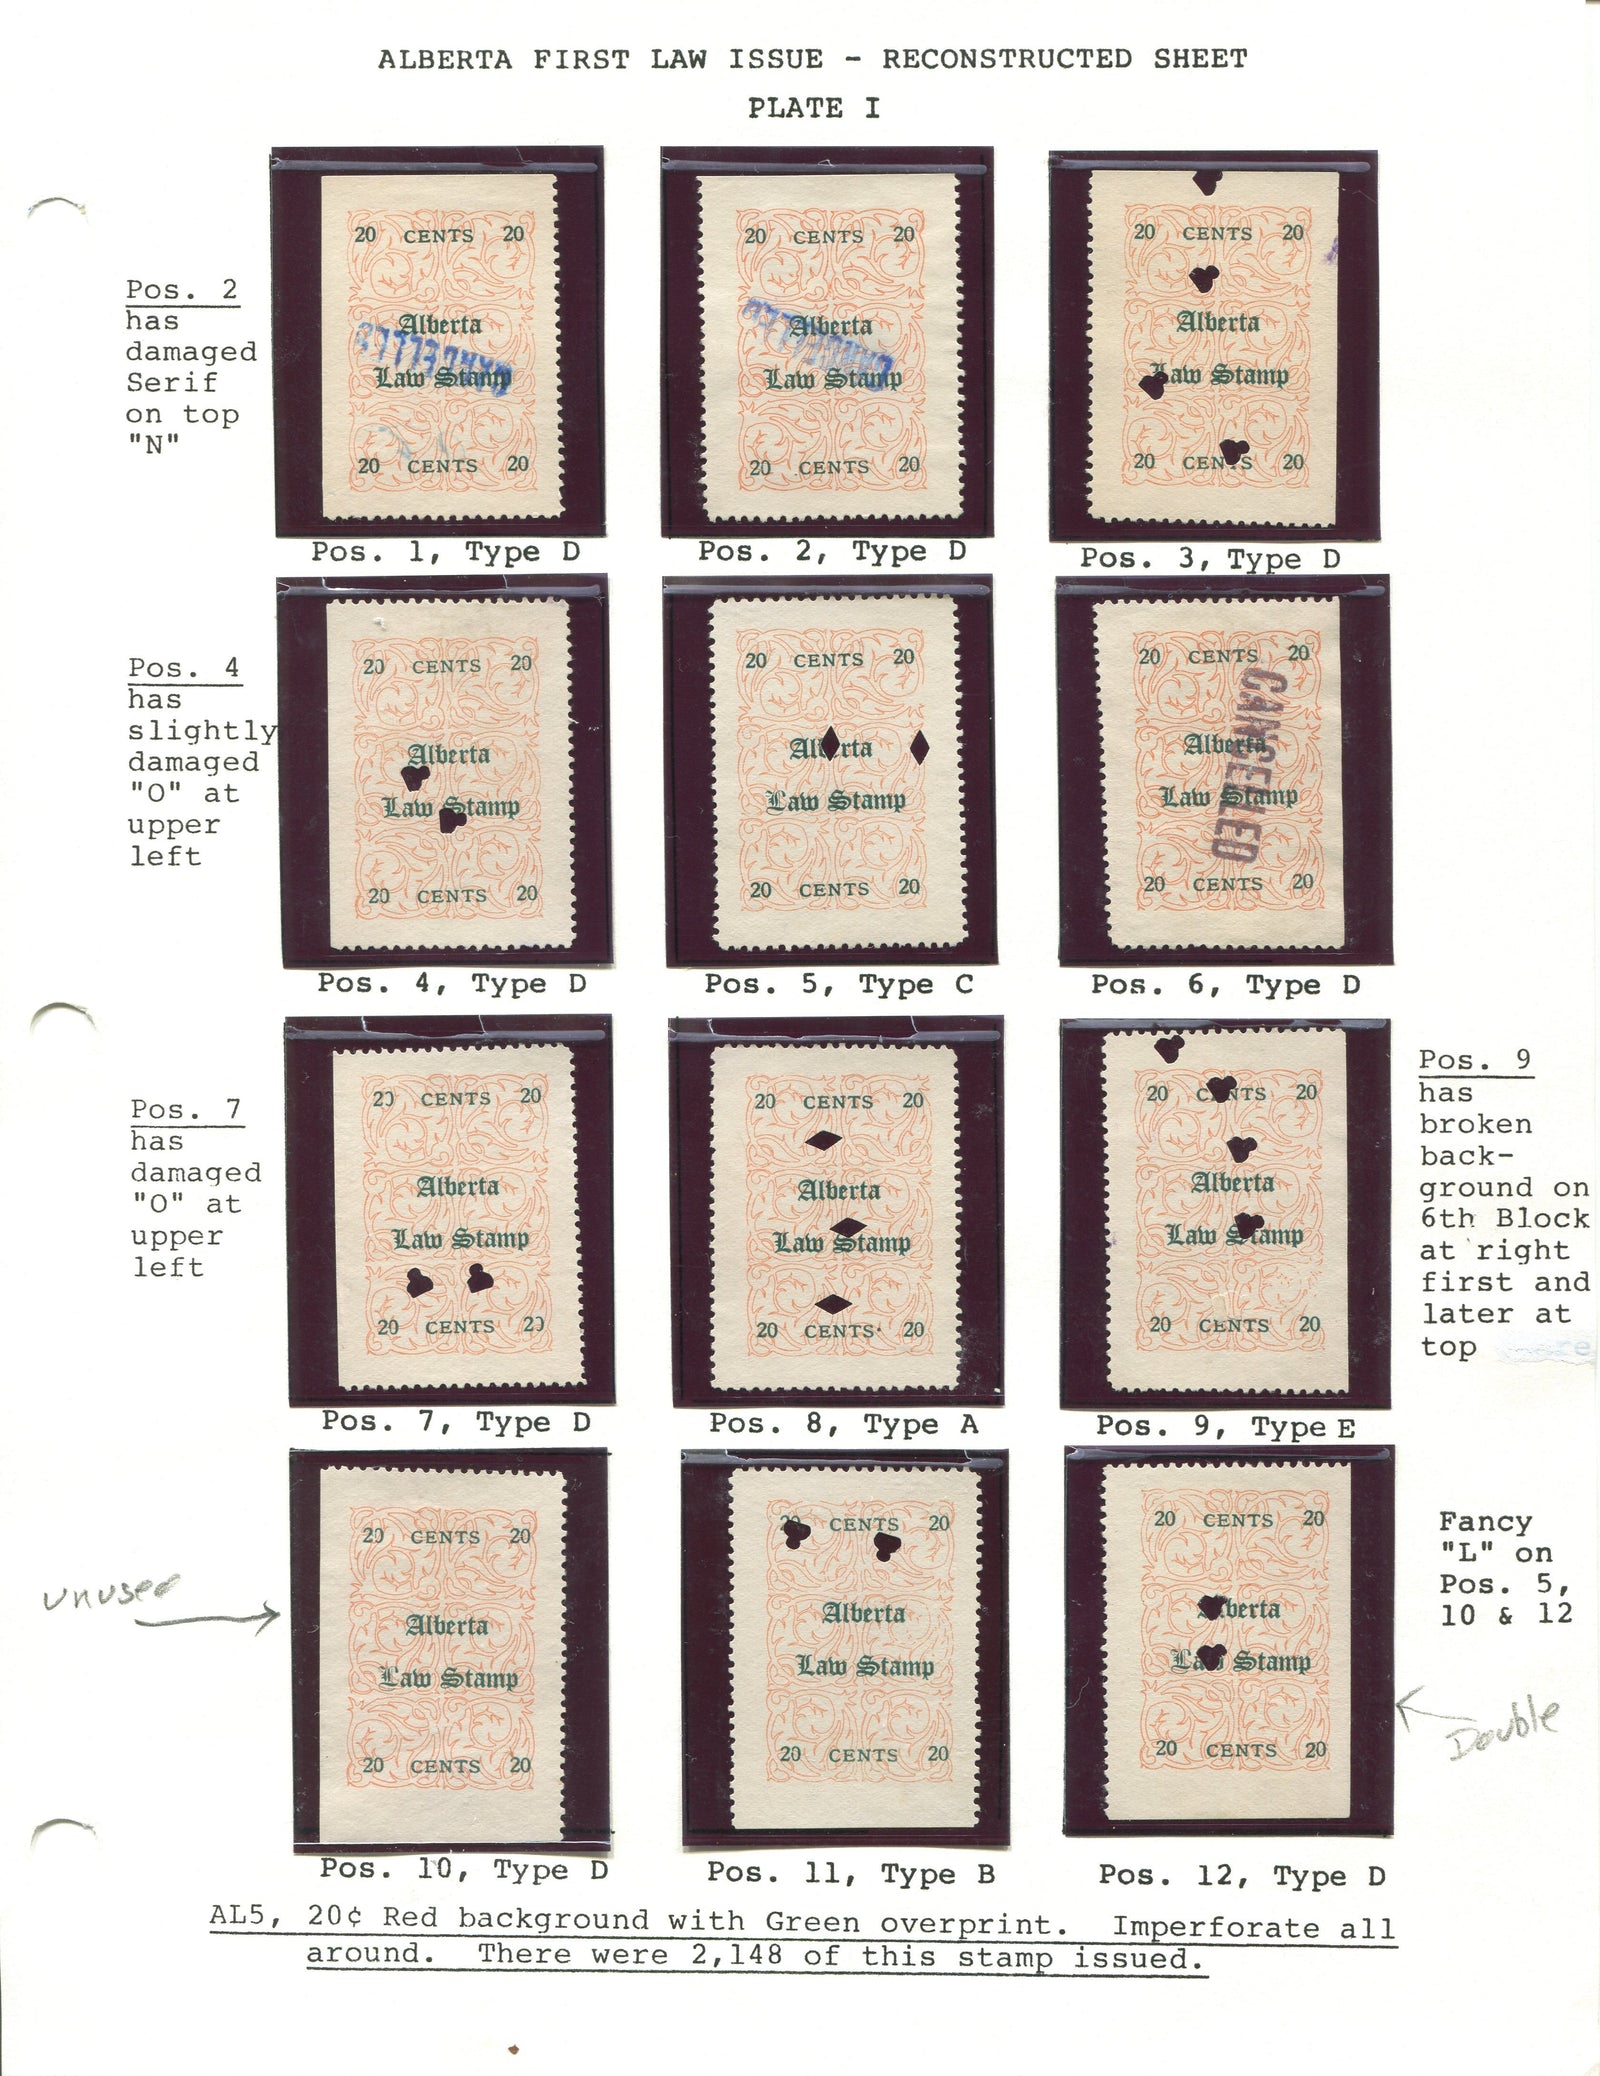 ALBERTA FIRST LAW ISSUE - RECONSTRUCTED SHEET
PLATE I
Pos. 2
has
damaged
Serif
on top
"N"
20 CENTS 20
Alberta
Law Stamp
CANCELLED
20 CENTS 20
Pos. 1, Type D
20 CENTS 20
Alberta
Law Stamp
CANCELLED
20 CENTS 20
Pos. 2, Type D
20 CENTS 20
Alberta
Law Stamp
20 CENTS 20
Pos. 3, Type D
Pos. 4
has
slightly
damaged
"O" at
upper
left
20 CENTS 20
Alberta
Law Stamp
20 CENTS 20
Pos. 4, Type D
20 CENTS 20
Alberta
Law Stamp
20 CENTS 20
Pos. 5, Type C
20 CENTS 20
Alberta
Law Stamp
CANCELLED
20 CENTS 20
Pos. 6, Type D
Pos. 7
has
damaged
"O" at
upper
left
20 CENTS 20
Alberta
Law Stamp
20 CENTS 20
Pos. 7, Type D
20 CENTS 20
Alberta
Law Stamp
20 CENTS 20
Pos. 8, Type A
20 CENTS 20
Alberta
Law Stamp
20 CENTS 20
Pos. 9, Type E
Pos. 9
has
broken
back-
ground on
6th Block
at right
first and
later at
top
unused
20 CENTS 20
Alberta
Law Stamp
20 CENTS 20
Pos. 10, Type D
20 CENTS 20
Alberta
Law Stamp
20 CENTS 20
Pos. 11, Type B
20 CENTS 20
Alberta
Law Stamp
20 CENTS 20
Pos. 12, Type D
Fancy
"L" on
Pos. 5,
10 & 12
Double
AL5, 20¢ Red background with Green overprint. Imperforate all
around. There were 2,148 of this stamp issued.